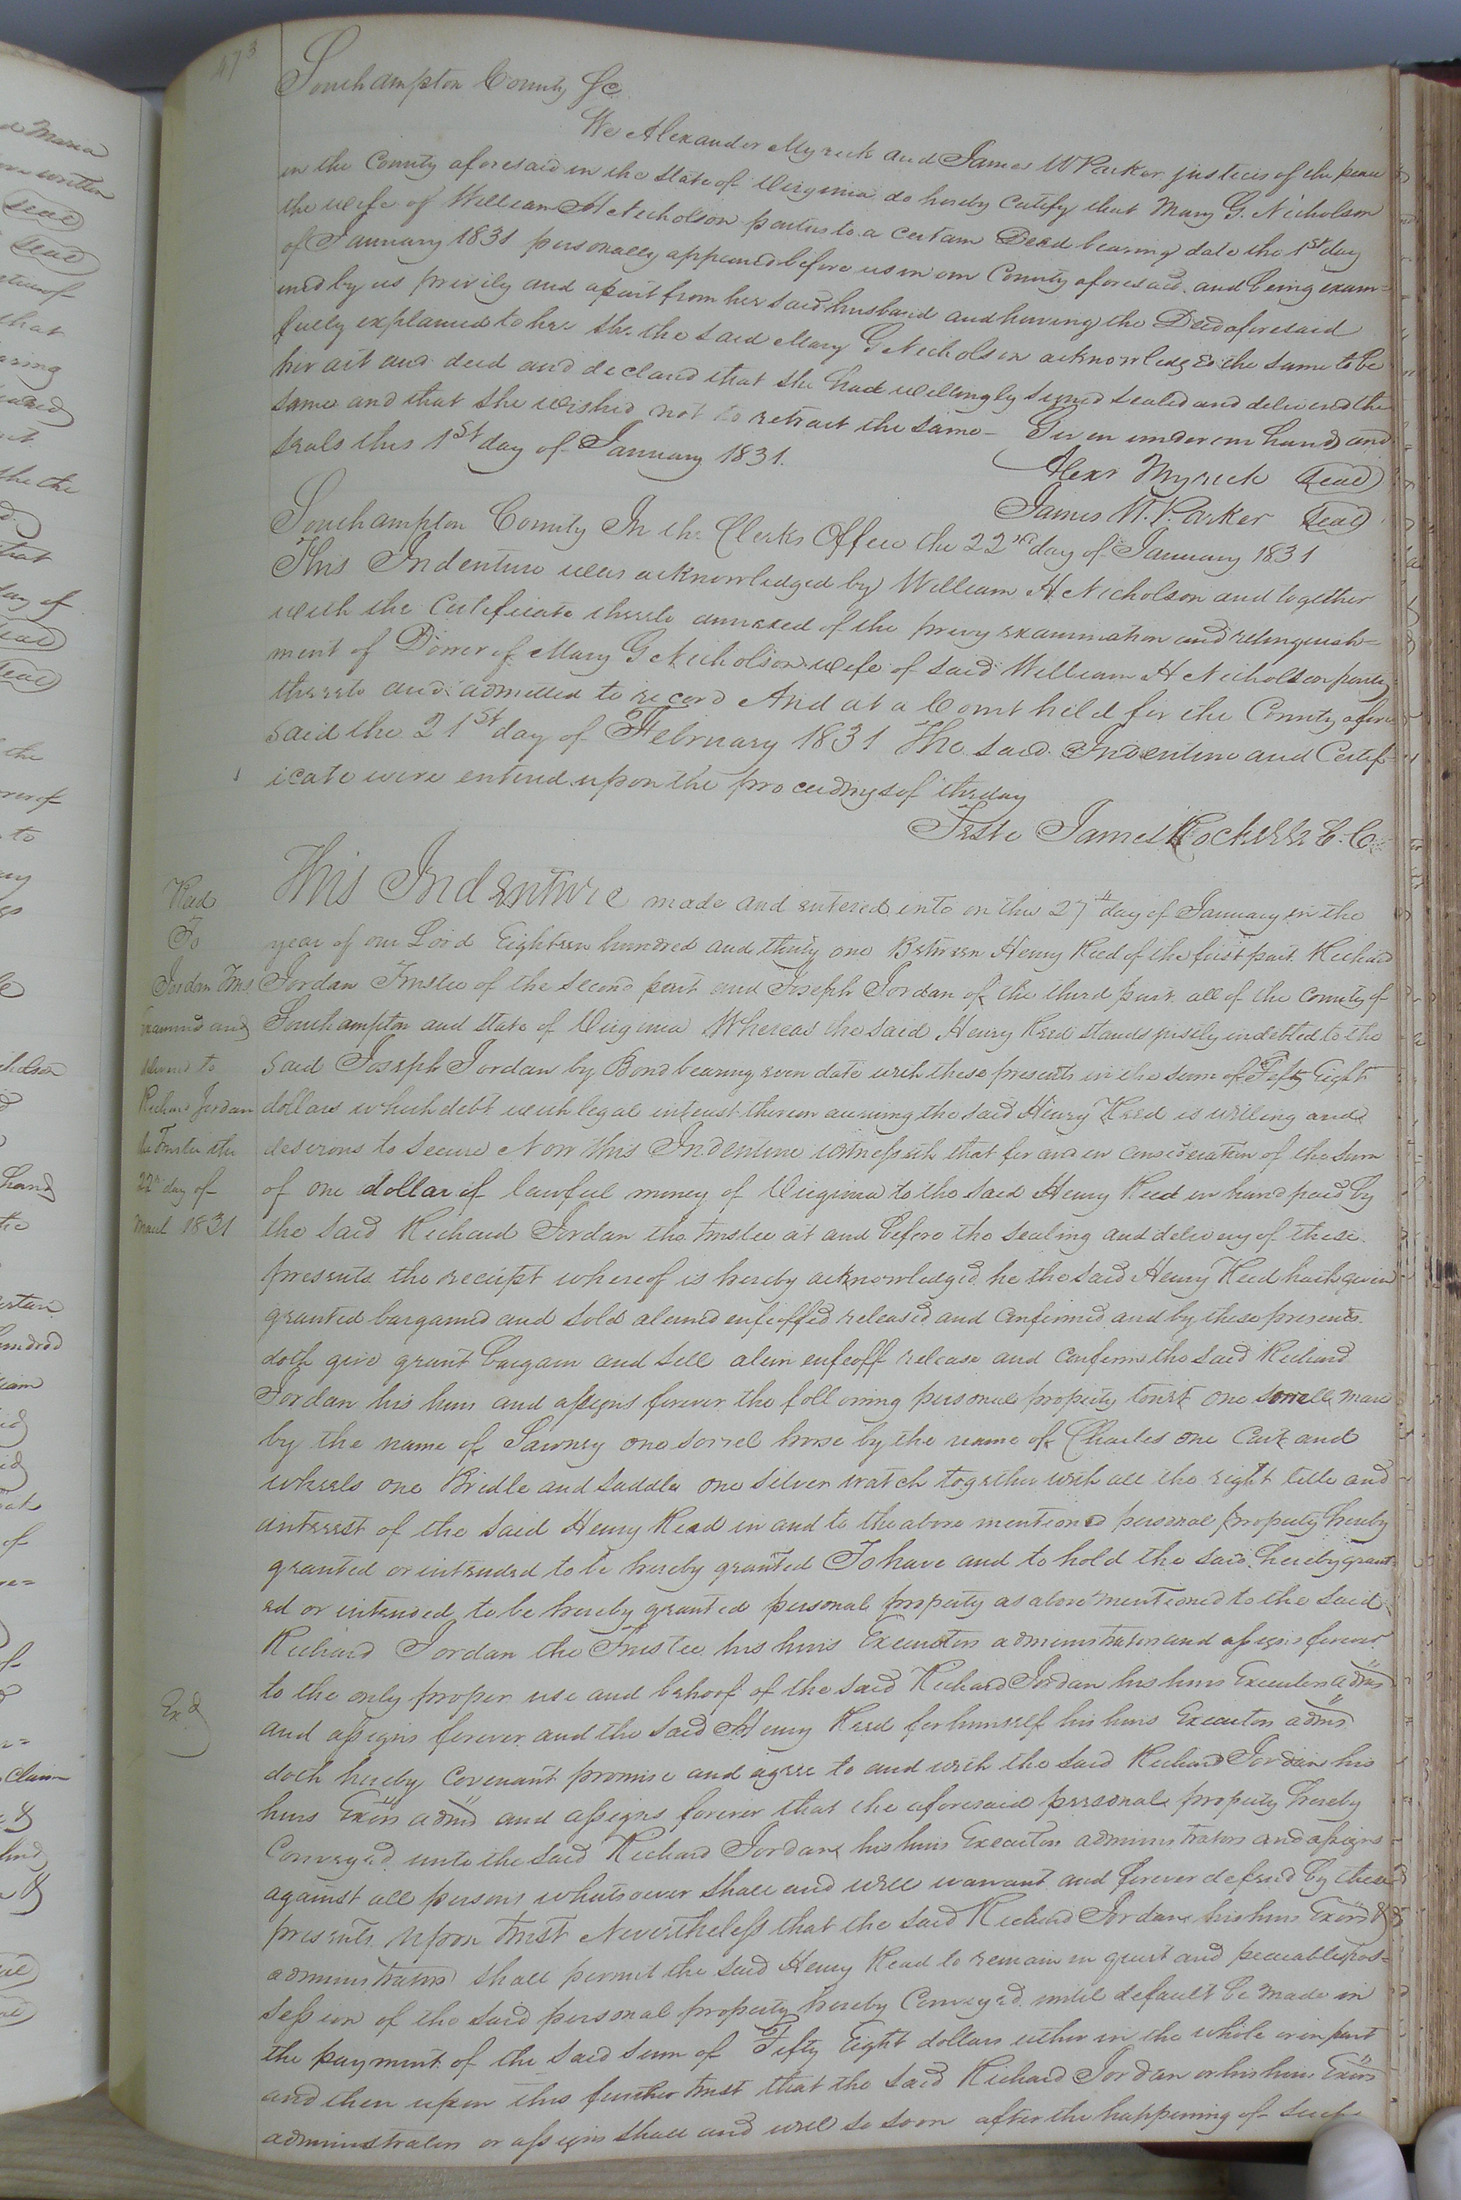 473
Southampton County Sc
We Alexander Myrick and James W Parker justices of the peace
in the County aforesaid in the State of Virginia do hereby Certify that Mary G. Nicholson
the wife of William H Nicholson parties to a certain Deed bearing date the 1st day
of January 1831 personally appeared before us in our County aforesaid and being exam=
ined by us privily and apart from her said husband and having the Deed aforesaid
fully explained to her she the said Mary G Nicholson acknowledged the same to be
her act and deed and declared that she had willingly signed sealed and delivered the
same and that she wished not to retract the same - Given under our hands and
seals this 1st day of January 1831.
Alexr Myrick Seal
James W. Parker Seal
Southampton County In the Clerks Office the 22nd day of January 1831
This Indenture was acknowledged by William H Nicholson and together
with the Certificate thereto annexed of the privy examination and relinquish=
ment of Dower of Mary G Nicholson wife of said William H Nicholson party
thereto and admitted to record And at a Court held for the County afore
said the 21st day of February 1831 The said Indenture and Certif-
icate were entered upon the proceedings of the day
Teste James Rochelle C.C.
Reed
To
Jordan Trus
Examined and
delivered to
Richard Jordan
the Trustee the
22nd day of
March 1831
This Indenture made and entered into on this 27th day of January in the
year of our Lord Eighteen hundred and thirty one Between Henry Reed of the first part Richard
Jordan Trustee of the second part and Joseph Jordan of the third part all of the County of
Southampton and State of Virginia Whereas the said Henry Reed stands justly indebted to the
said Joseph Jordan by Bond bearing even date with these presents in the sum of Fifty Eight
dollars which debt with legal interest thereon accruing the said Henry Reed is willing and
desirous to secure Now this Indenture witnesseth that for and in consideration of the sum
of one dollar of lawful money of Virginia to the said Henry Reed in hand paid by
the said Richard Jordan the trustee at and before the sealing and delivery of these
presents the receipt whereof is hereby acknowledged he the said Henry Reed hath given
granted bargained and sold aliened enfeoffed released and confirmed and by these presents
doth give grant bargain and sell alien enfeoff release and confirm the said Richard
Jordan his heirs and assigns forever the following personal property towit one sorrell mare
by the name of Sawney one sorrel horse by the name of Charles one Cart and
wheels one Bridle and saddle one silver watch together with all the right title and
interest of the said Henry Read in and to the above mentioned personal property hereby
granted or intended to be hereby granted To have and to hold the said hereby grant
ed or intended to be hereby granted personal property as above mentioned to the said
Richard Jordan the Trustee his heirs Executors administrators and assigns forever
to the only proper use and behoof of the said Richard Jordan his heirs Executors adms
Exd
and assigns forever and the said Henry Reed for himself his heirs Executors adms
doth hereby Covenant promise and agree to and with the said Richard Jordan his
heirs Exors adms and assigns forever that the aforesaid personal property hereby
Conveyed unto the said Richard Jordan his heirs Executors administrators and assigns
against all persons whatsoever shall and will warrant and forever defend by these
presents upon trust Nevertheless that the said Richard Jordan his heirs Exors &
administrators shall permit the said Henry Read to remain in quiet and peaceable pos=
session of the said personal property hereby Conveyed until default be made in
the payment of the said sum of Fifty Eight dollars either in the whole or in part
and then upon this further trust that the said Richard Jordan or his heirs Exors
administrators or assigns shall and will so soon after the happening of such